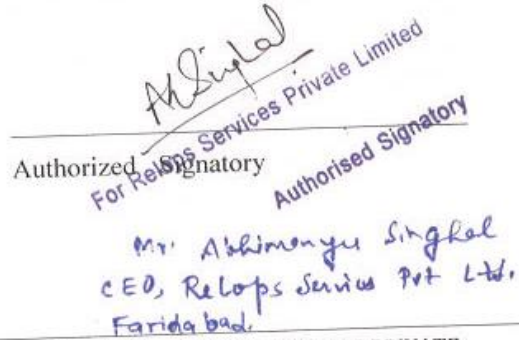 AkSinghal
For Relops Services Private Limited
Authorized Signatory
Authorised Signatory
Mr. Abhimanyu Singhal
CEO, Relops Services Pvt Ltd.
Faridabad.